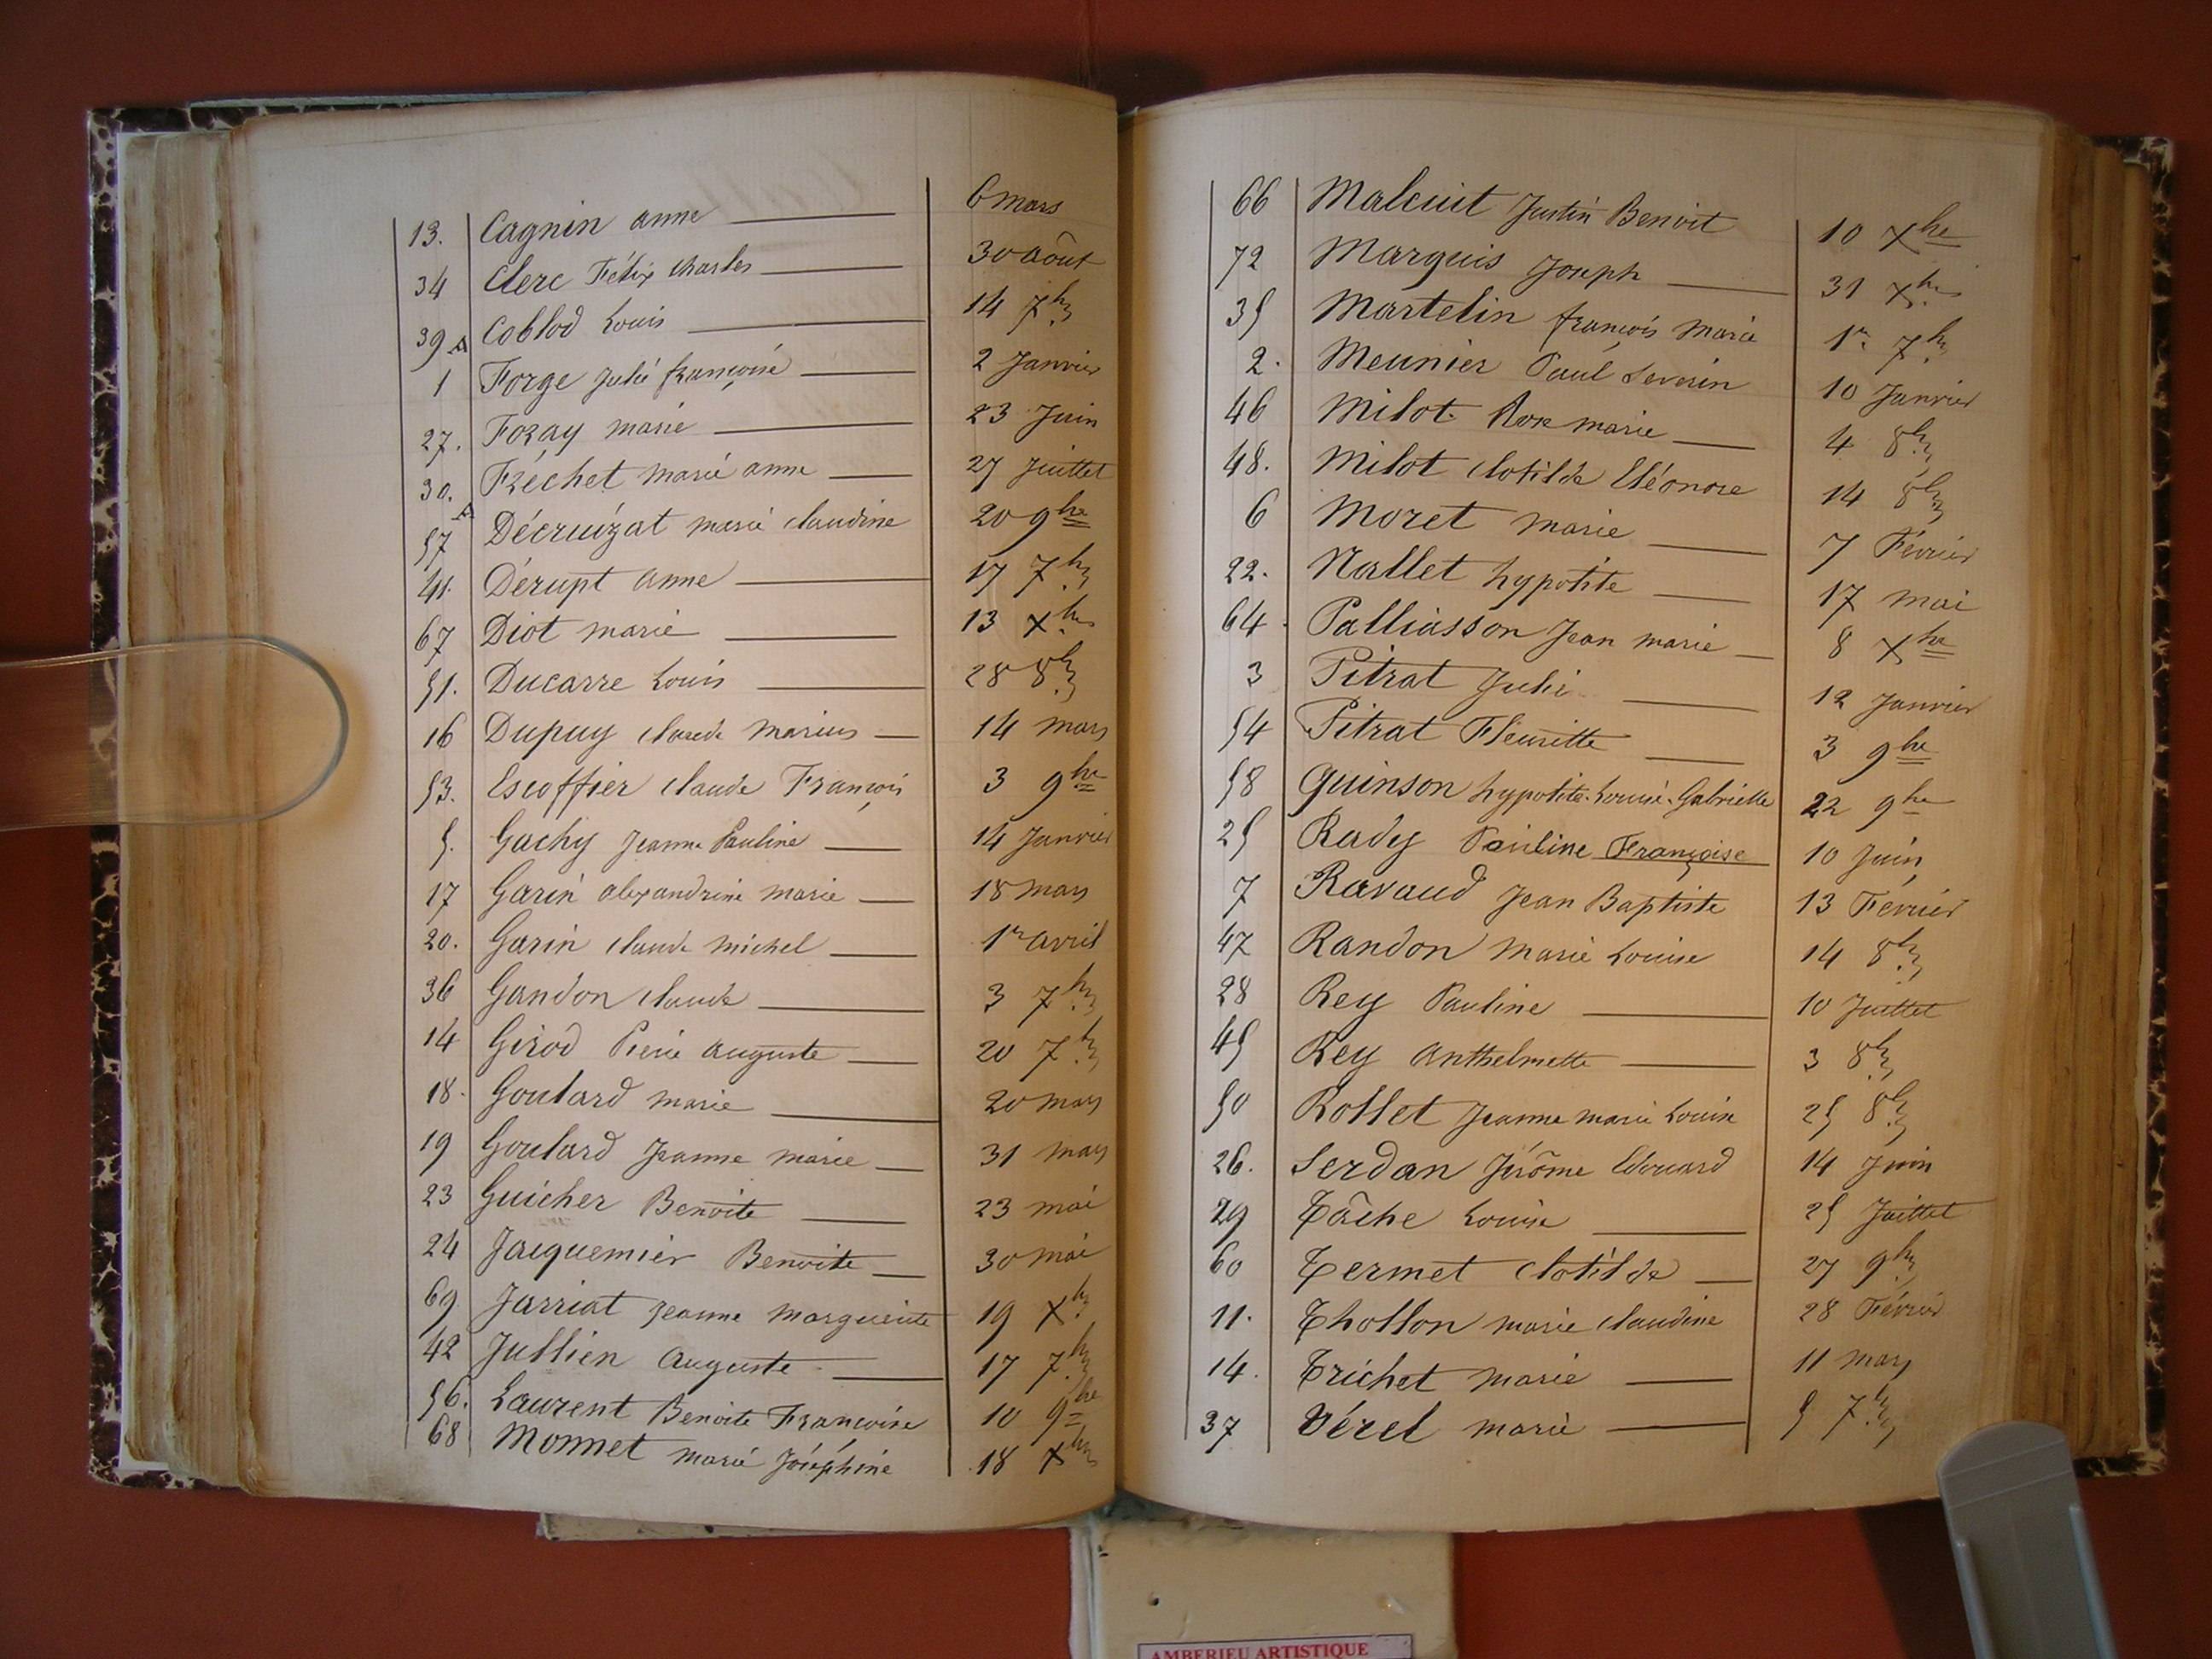 13. Cagnin anne 6 mars
34 Clerc Félix Charles 30 août
39 A Coblod Louis 14 7bre
1 Forge Julie françoise 2 Janvier
27. Foray marie 23 Juin
30. Fréchet marie anne 27 Juillet
57 A Décruizat marie claudine 20 9bre
41. Dérupt anne 17 7bre
67 Diot marie 13 Xbre
51. Ducarre Louis 28 8bre
16 Dupuy claude Marius 14 mars
53. Escoffier claude François 3 9bre
5. Gachy Jeanne Pauline 14 Janvier
17 Garin alexandrine marie 18 mars
20. Garin claude michel 1er avril
36 Gandon claude 3 7bre
14 Girod Pierre auguste 20 7bre
18. Goulard marie 20 mars
19 Goulard Jeanne marie 31 mars
23 Guicher Benoite 23 mai
24 Jacquemier Benoite 30 mai
69 Jarriat Jeanne Marguerite 19 Xbre
42 Jullien Auguste 17 7bre
56. Laurent Benoite Françoise 10 9bre
68 Monnet marie Joséphine 18 Xbre
66 Malcuit Justin Benoit 10 Xbre
72 Marguis Joseph 31 Xbre
35 Martelin françois Marie 1er 7bre
2. Meunier Paul Severin 10 Janvier
46 Milot Rose marie 4 8bre
48. Milot clotilde Eléonore 14 8bre
6 Moret marie 7 Février
22. Nallet hypolite 17 mai
64. Palliasson Jean marie 8 Xbre
3 Pitrat Julie 12 Janvier
54 Pitrat Fleurette 3 9bre
58 Quinson hypolite. Louise. Gabrielle 22 9bre
25 Rady Pauline Françoise 10 Juin
7 Ravaud Jean Baptiste 13 Février
47 Randon Marie Louise 14 8bre
28 Rey Pauline 10 Juillet
45 Rey Anthelmette 3 8bre
50 Rollet Jeanne marie Louise 25 8bre
26. Serdan Jérôme Edouard 14 Juin
29 Tâche Louise 25 Juillet
60 Termet Clotilde 27 9bre
11. Thollon marie claudine 28 Février
14. Trichet Marie 11 mars
37 Vérel marie 5 7bre
AMBERIEU ARTISTIQUE